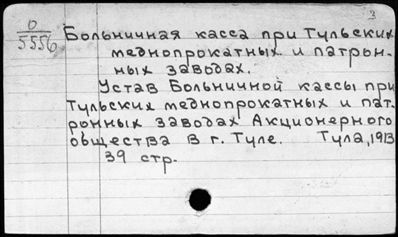 3
О
5556
Больничная касса при Тульских
меднопрокатных и патрон-
ных заводах.
Устав Больничной кассы при
Тульских меднопрокатных и пат-
ронных заводах Акционерного
общества в г. Туле. Тула, 1913
39 стр.